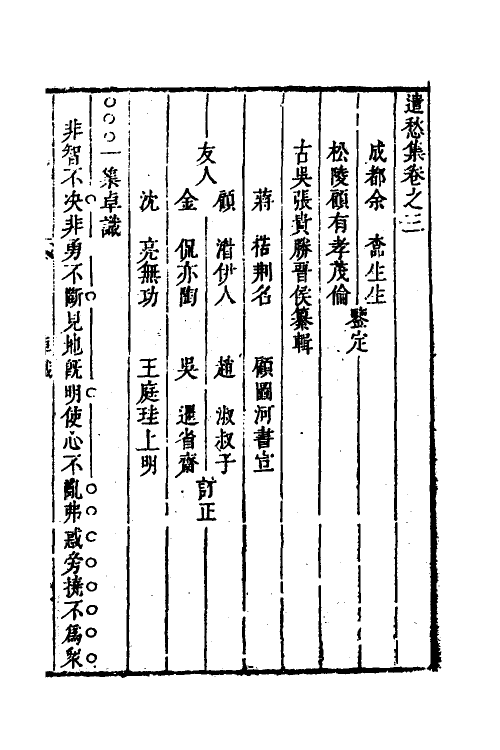 遣愁集卷之三
成都余　生生
松陵顧有孝茂倫　鑒定
古吳張貴勝晉侯纂輯
蔣　荊名　顧圖河書宣
友人　顧　湄伊人　趙　淑叔子　訂正
金　侃亦陶　吳　暹省齋
沈　亮無功　王庭珪上明
一集卓識
非智不決非勇不斷見地既明使心不亂弗惑旁撓不爲衆